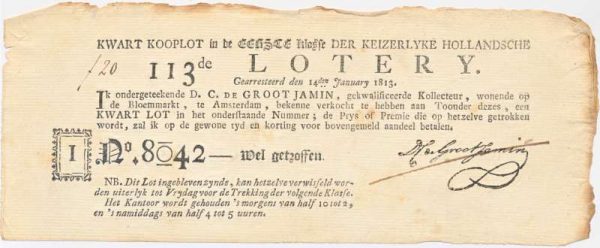 KWART KOOPLOT in de EERSTE Klasse DER KEIZERLYKE HOLLANDSCHE
ƒ20 113de LOTERY.
Gearresteerd den 14den January 1813.
Ik ondergeteekende D. C. DE GROOT JAMIN, gekwalificeerde Kollecteur, wonende op
de Bloemmarkt, te Amsterdam, bekenne verkocht te hebben aan Toonder dezes, een
KWART LOT in het onderstaande Nummer; de Prys of Premie die op hetzelve getrokken
wordt, zal ik op de gewone tyd en korting voor bovengemeld aandeel betalen.
I No. 8042— Wel getroffen.
DC de Groot Jamin
NB. Die Lot ingebleven zynde, kan hetzelve verwisseld wor-
den uiterlyk tot Vrydag voor de Trekking der volgende Klasse.
Het Kantoor wordt gehouden 's morgens van half 10 tot 2,
en 's namiddags van half 4 tot 5 uuren.